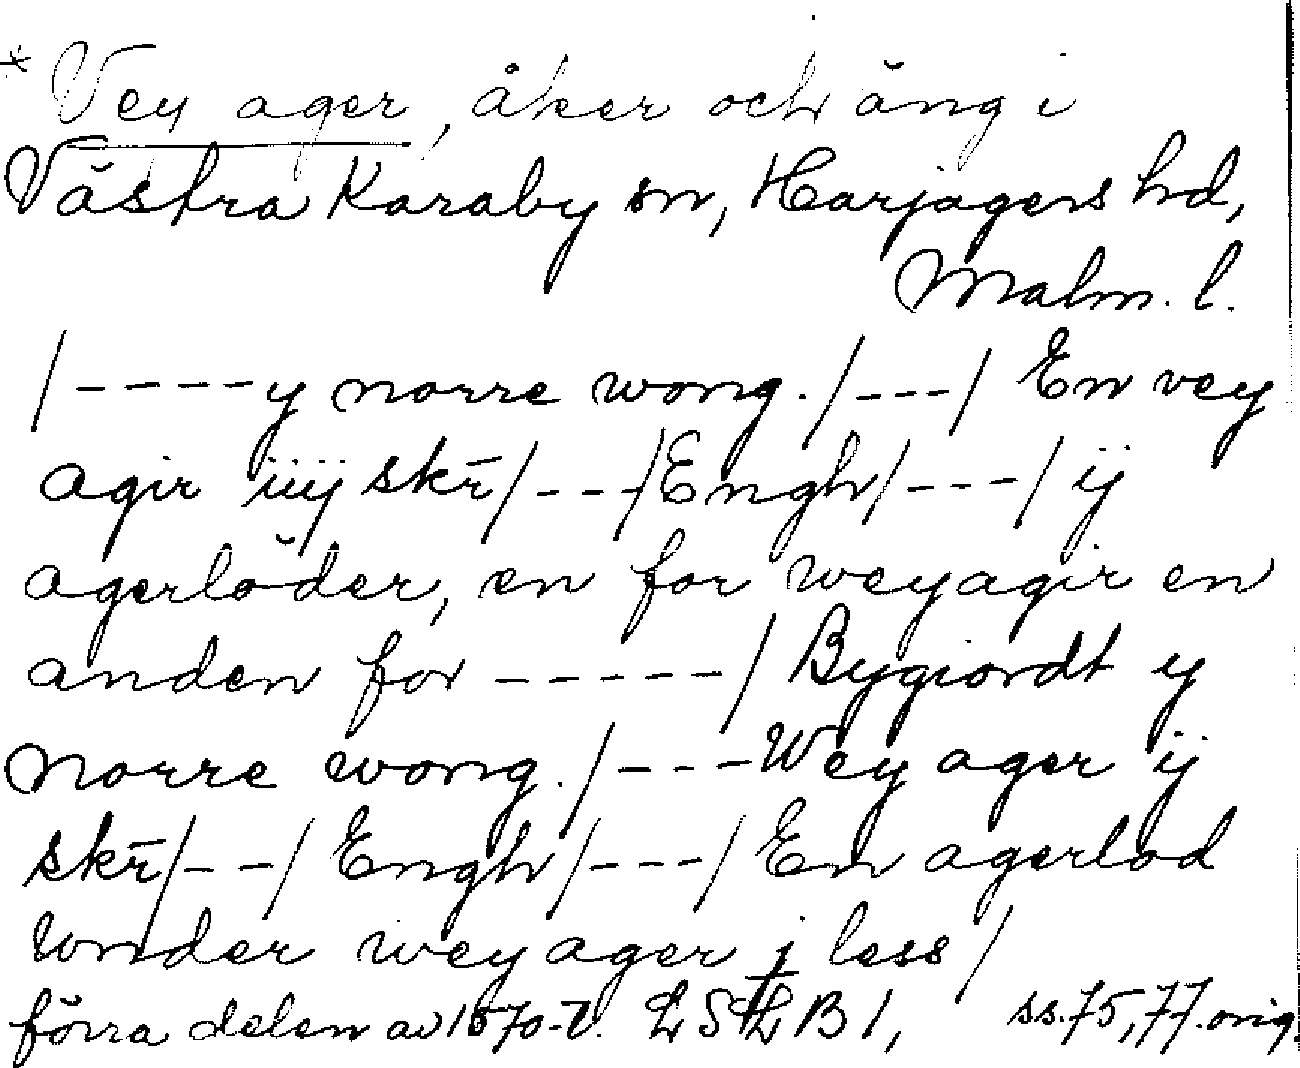 * Vey ager, åker och äng i
Västra Karaby sn, Harjagers hd,
Malm. l.
/----y norre wong./---/ En vey
agir iiij skr̄/---/Engh/---/ ij
agerlöder, en for weyagir en
anden for -----/ Bygiordt y
norre wong./---Wey ager ij
skr̄/--/ Engh/---/ En agerlod
wnder wey ager j less/
förra delen av 1570-t. LSLB 1, ss.75,77.orig.